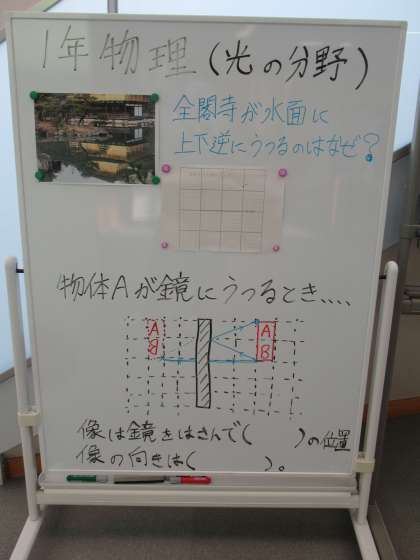 1年物理(光の分野)
金閣寺が水面に
上下逆にうつるのはなぜ?
物体Aが鏡にうつるとき....
A A
B B
像は鏡をはさんで( )の位置
像の向きは( )。